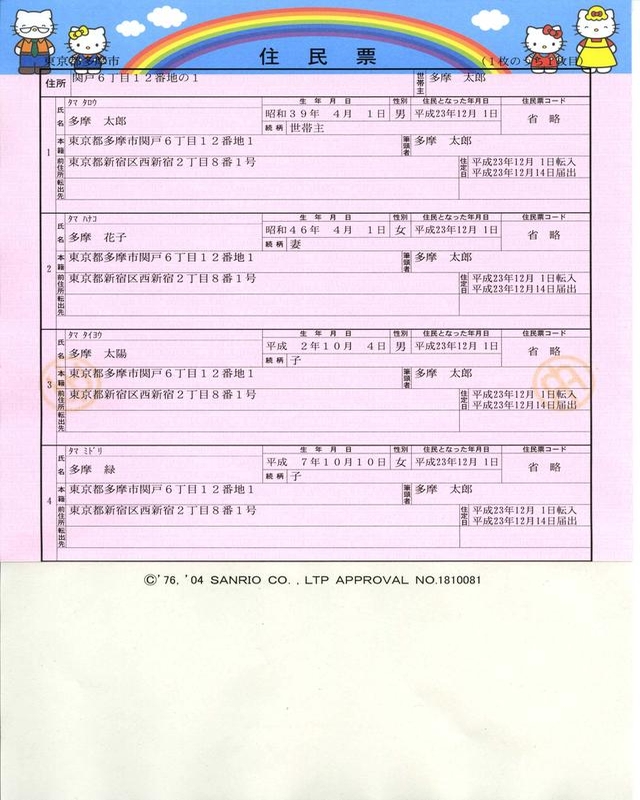 住民票
東京都多摩市
(1枚のうち1枚目)
住所 関戸6丁目12番地の1 世帯主 多摩 太郎
1
氏名 タマ タロウ 生年月日 性別 住民となった年月日 住民票コード
多摩 太郎 昭和39年 4月 1日 男 平成23年12月 1日 省略
続柄 世帯主
本籍 東京都多摩市関戸6丁目12番地1 筆頭者 多摩 太郎
前住所 東京都新宿区西新宿2丁目8番1号 住定日 平成23年12月 1日転入
平成23年12月14日届出
転出先
2
氏名 タマ ハナコ 生年月日 性別 住民となった年月日 住民票コード
多摩 花子 昭和46年 4月 1日 女 平成23年12月 1日 省略
続柄 妻
本籍 東京都多摩市関戸6丁目12番地1 筆頭者 多摩 太郎
前住所 東京都新宿区西新宿2丁目8番1号 住定日 平成23年12月 1日転入
平成23年12月14日届出
転出先
3
氏名 タマ タイヨウ 生年月日 性別 住民となった年月日 住民票コード
多摩 太陽 平成 2年10月 4日 男 平成23年12月 1日 省略
続柄 子
本籍 東京都多摩市関戸6丁目12番地1 筆頭者 多摩 太郎
前住所 東京都新宿区西新宿2丁目8番1号 住定日 平成23年12月 1日転入
平成23年12月14日届出
転出先
4
氏名 タマ ミドリ 生年月日 性別 住民となった年月日 住民票コード
多摩 緑 平成 7年10月10日 女 平成23年12月 1日 省略
続柄 子
本籍 東京都多摩市関戸6丁目12番地1 筆頭者 多摩 太郎
前住所 東京都新宿区西新宿2丁目8番1号 住定日 平成23年12月 1日転入
平成23年12月14日届出
転出先
©'76, '04 SANRIO CO. , LTP APPROVAL NO.1810081